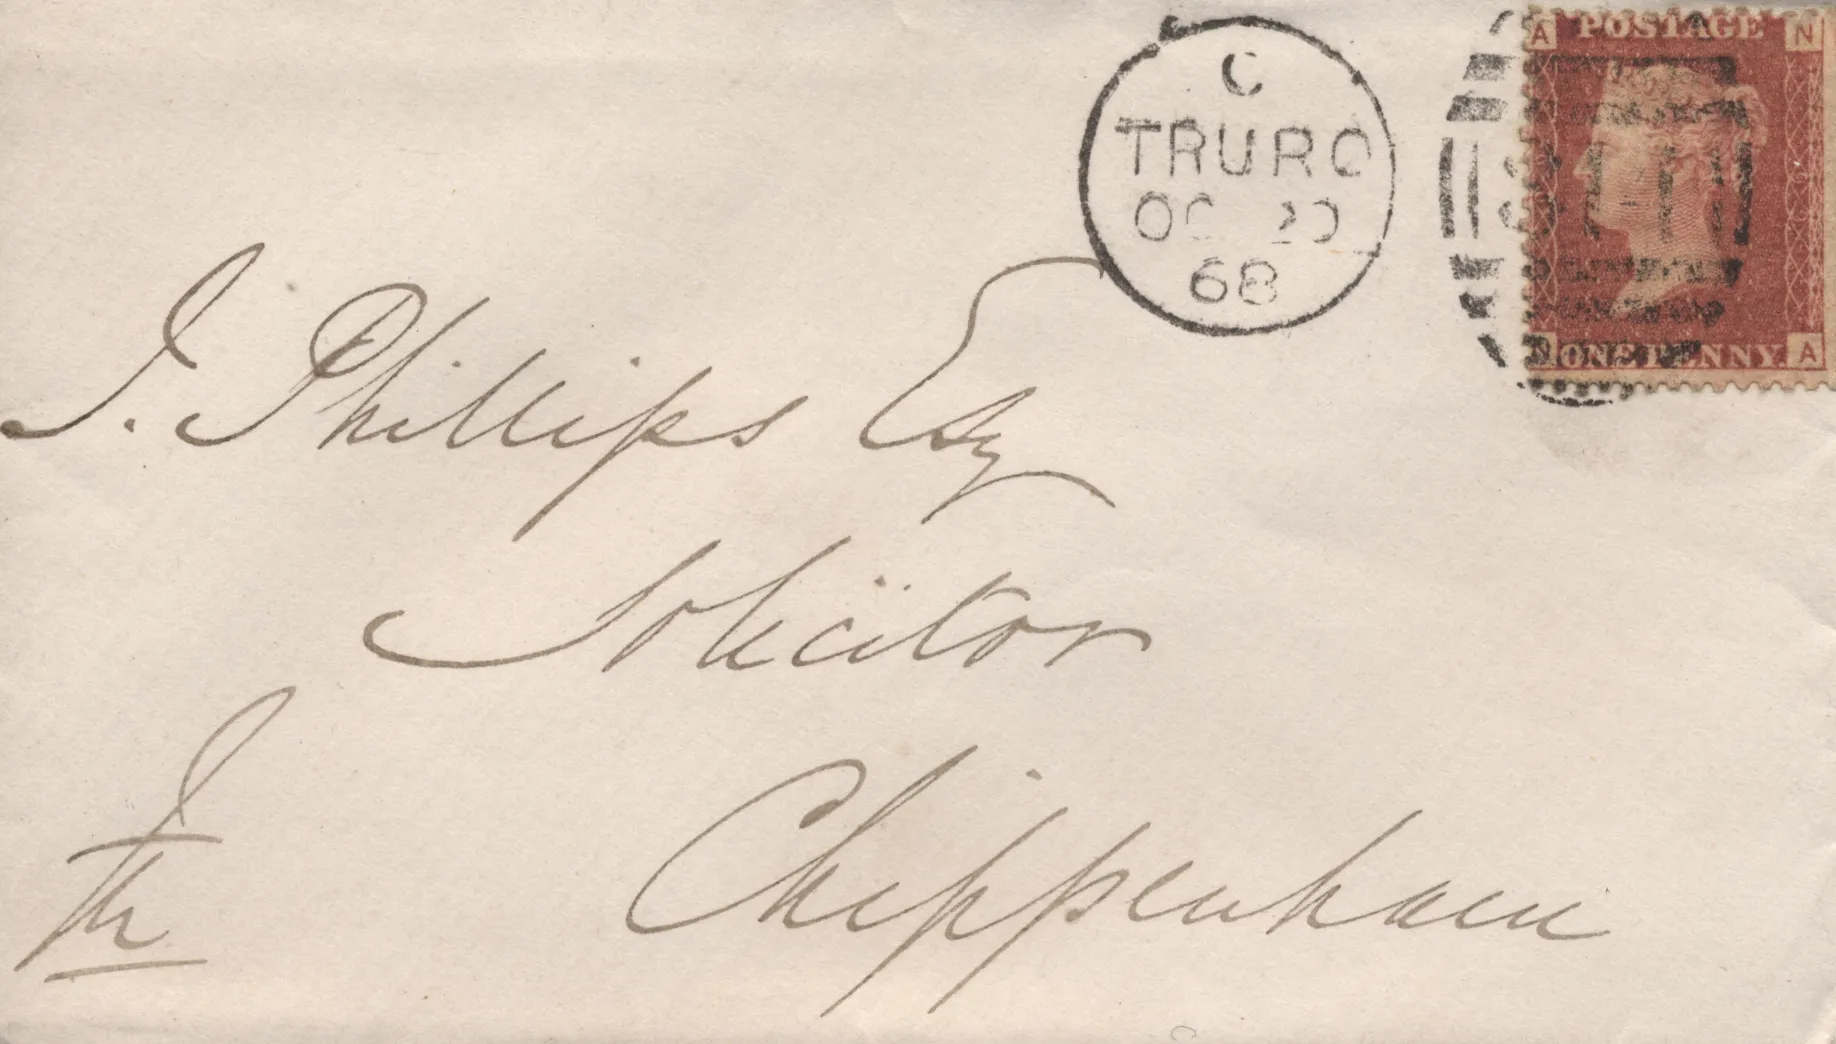 C
TRURO
OC 20
68
A POSTAGE N
N ONE PENNY. A
J. Phillips Esq
Solicitor
Chippenham